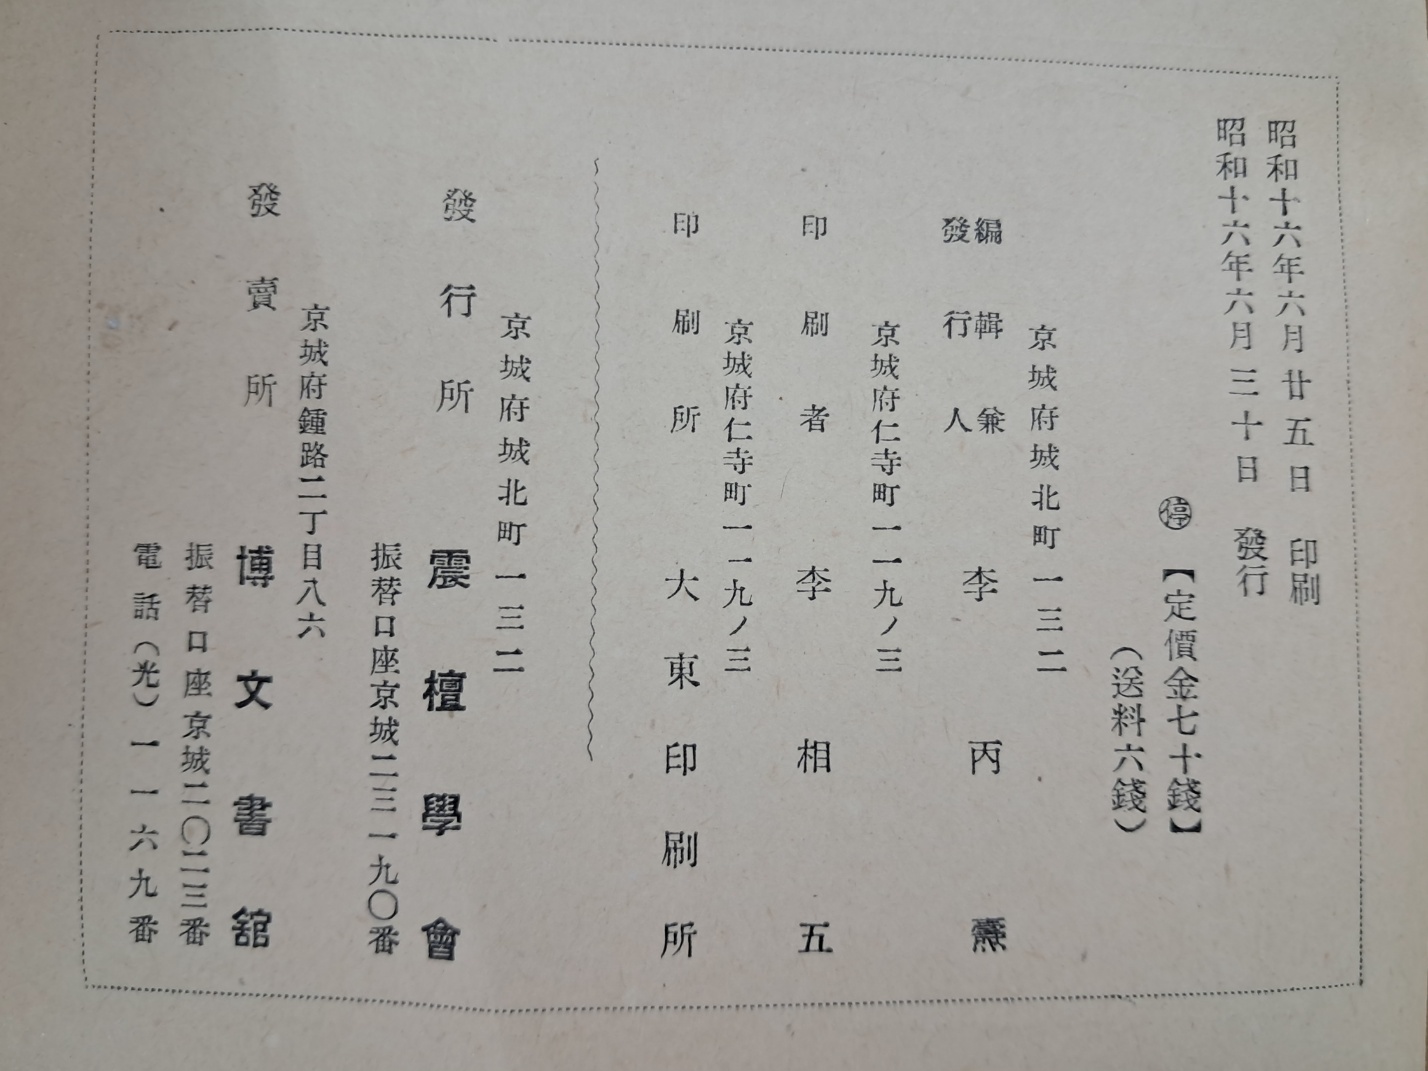 昭和十六年六月廿五日 印刷
昭和十六年六月三十日 發行
㊡【定價金七十錢】
(送料六錢)
京城府城北町一三二
編輯兼
發行人
李丙燾
京城府仁寺町一一九ノ三
印刷者 李相五
京城府仁寺町一一九ノ三
印刷所 大東印刷所
京城府城北町一三二
發行所 震檀學會
振替口座京城二三一九〇番
京城府鍾路二丁目八六
發賣所 博文書舘
振替口座京城二〇二三番
電話(光)一一六九番